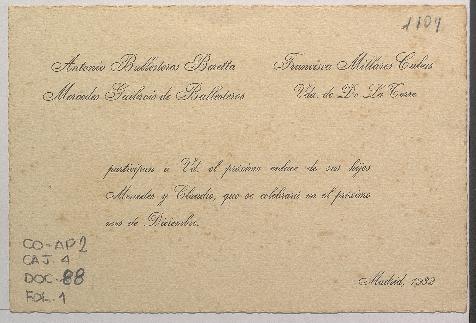 1104
Antonio Ballesteros Beretta
Mercedes Gaibrois de Ballesteros
Francisca Millares Cubas
Vda. de De La Torre
participan a Vd. el próximo enlace de sus hijos
Mercedes y Claudio, que se celebrará en el próximo
mes de Diciembre.
Madrid, 1932
CO-AP2
CAJ. 4
DOC. 88
FOL. 1